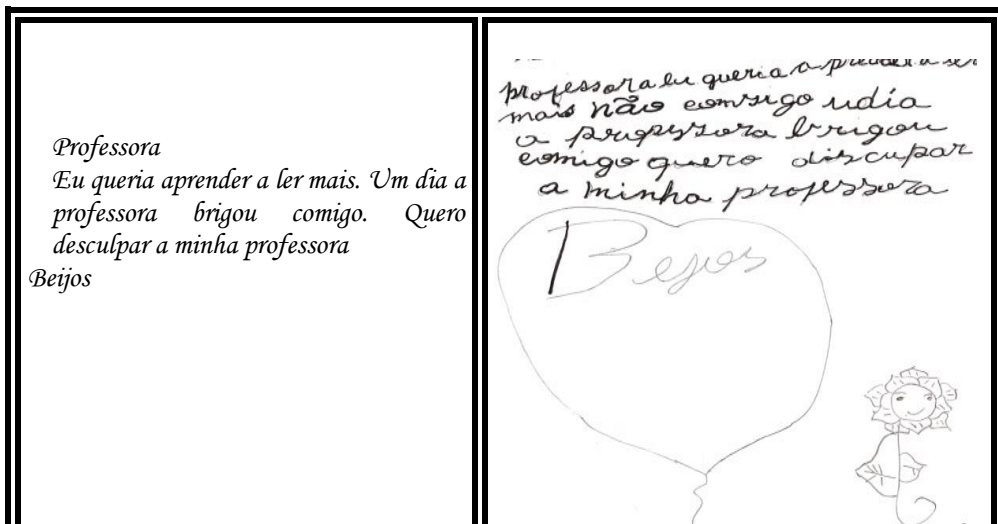 Professora
Eu queria aprender a ler mais. Um dia a
professora brigou comigo. Quero
desculpar a minha professora
Beijos
professora eu queria a prender a ler
mais não comsigo udia
a professora brigou
comigo quero discupar
a minha professora
Bejos